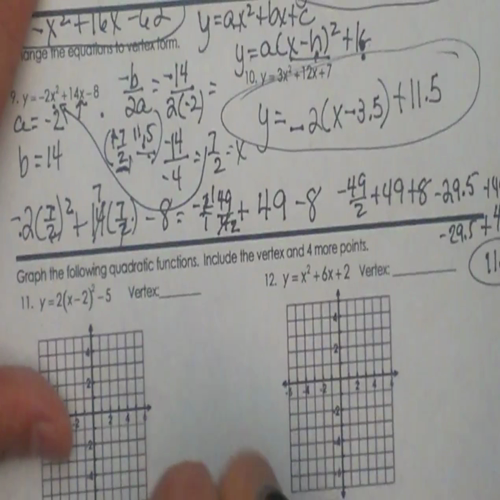 -x² + 16x - 62
y=ax²+bx+c
change the equations to vertex form.
y=a(x-h)²+k
9. y = -2x² + 14x - 8
-b/2a = -14/2(-2) =
10. y = 3x² + 12x + 7
a=-2
y=-2(x-3.5)+11.5
b=14
(+7/2, 11.5)
-14/-4 = 7/2 = x
-2(7/2)² + 14(7/2) - 8 =
+ 49 - 8
-49/2 + 49 + 8
-29.5
-29.5 +
Graph the following quadratic functions. Include the vertex and 4 more points.
11. y = 2(x - 2)² - 5 Vertex:______
12. y = x² + 6x + 2 Vertex:__________